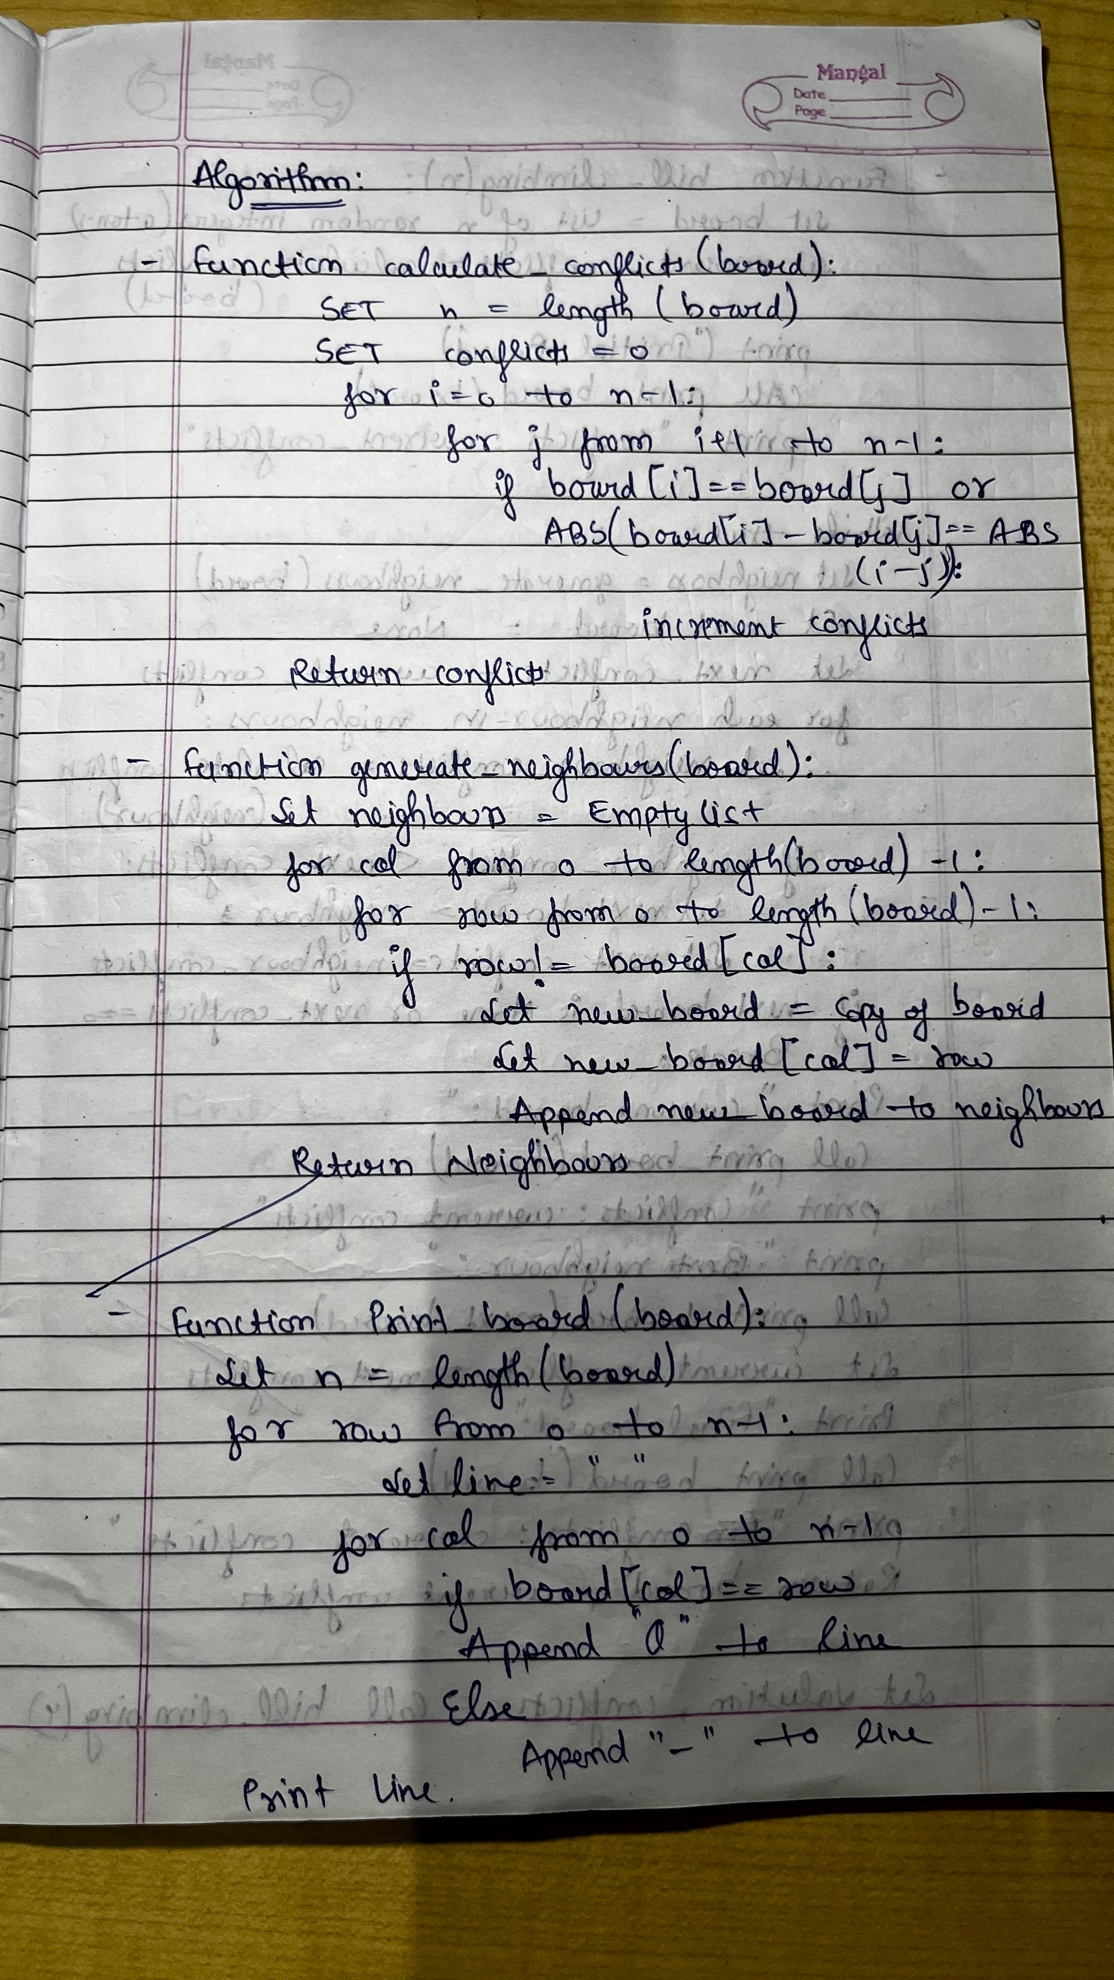 Mangal
Date
Page
Algorithm:
- function calculate_conflicts (board):
SET n = length (board)
SET conflicts = 0
for i=0 to n-1:
for j from i+1 to n-1:
if board [i]==board[j] or
ABS(board[i] - board[j]== ABS
(i-j)):
increment conflicts
Return conflicts
- function generate_neighbours(board):
Set neighbours = Empty list
for col from 0 to length(board) -1:
for row from 0 to length (board)-1:
if row!= board [col]:
Set new_board = copy of board
Set new_board [col] = row
Append new_board to neighbours
Return Neighbours
- function Print_board (board):
Set n = length (board)
for row from 0 to n-1:
Set line = " "
for col from 0 to n-1
if board [col]== row
Append "Q" to line
Else
Append "-" to line
Print Line.